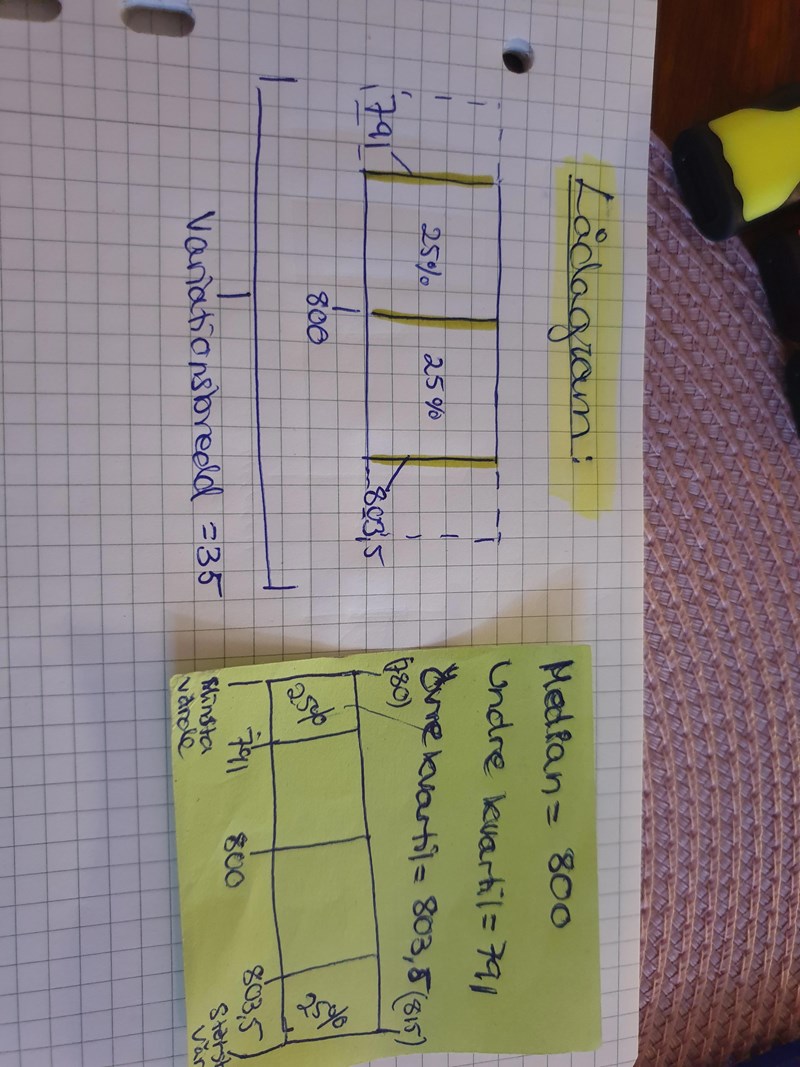 Lådagram:
25%
25%
791
800
803,5
Variationsbredd = 35
Median = 800
Undre kvartil = 791
Övre kvartil = 803,5
(780)
(815)
25%
25%
791
800
803,5
Minsta
värde